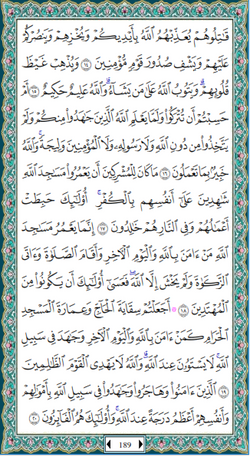 قَـٰتِلُوهُمْ يُعَذِّبْهُمُ ٱللَّهُ بِأَيْدِيكُمْ وَيُخْزِهِمْ وَيَنصُرْكُمْ
عَلَيْهِمْ وَيَشْفِ صُدُورَ قَوْمٍ مُّؤْمِنِينَ ١٤ وَيُذْهِبْ غَيْظَ
قُلُوبِهِمْ ۗ وَيَتُوبُ ٱللَّهُ عَلَىٰ مَن يَشَآءُ ۗ وَٱللَّهُ عَلِيمٌ حَكِيمٌ ١٥ أَمْ
حَسِبْتُمْ أَن تُتْرَكُوا۟ وَلَمَّا يَعْلَمِ ٱللَّهُ ٱلَّذِينَ جَـٰهَدُوا۟ مِنكُمْ وَلَمْ
يَتَّخِذُوا۟ مِن دُونِ ٱللَّهِ وَلَا رَسُولِهِۦ وَلَا ٱلْمُؤْمِنِينَ وَلِيجَةً ۚ وَٱللَّهُ
خَبِيرٌۢ بِمَا تَعْمَلُونَ ١٦ مَا كَانَ لِلْمُشْرِكِينَ أَن يَعْمُرُوا۟ مَسَـٰجِدَ ٱللَّهِ
شَـٰهِدِينَ عَلَىٰٓ أَنفُسِهِم بِٱلْكُفْرِ ۚ أُو۟لَـٰٓئِكَ حَبِطَتْ
أَعْمَـٰلُهُمْ وَفِى ٱلنَّارِ هُمْ خَـٰلِدُونَ ١٧ إِنَّمَا يَعْمُرُ مَسَـٰجِدَ
ٱللَّهِ مَنْ ءَامَنَ بِٱللَّهِ وَٱلْيَوْمِ ٱلْـَٔاخِرِ وَأَقَامَ ٱلصَّلَوٰةَ وَءَاتَى
ٱلزَّكَوٰةَ وَلَمْ يَخْشَ إِلَّا ٱللَّهَ ۖ فَعَسَىٰٓ أُو۟لَـٰٓئِكَ أَن يَكُونُوا۟ مِنَ
ٱلْمُهْتَدِينَ ١٨ أَجَعَلْتُمْ سِقَايَةَ ٱلْحَآجِّ وَعِمَارَةَ ٱلْمَسْجِدِ
ٱلْحَرَامِ كَمَنْ ءَامَنَ بِٱللَّهِ وَٱلْيَوْمِ ٱلْـَٔاخِرِ وَجَـٰهَدَ فِى سَبِيلِ
ٱللَّهِ ۚ لَا يَسْتَوُۥنَ عِندَ ٱللَّهِ ۗ وَٱللَّهُ لَا يَهْدِى ٱلْقَوْمَ ٱلظَّـٰلِمِينَ
١٩ ٱلَّذِينَ ءَامَنُوا۟ وَهَاجَرُوا۟ وَجَـٰهَدُوا۟ فِى سَبِيلِ ٱللَّهِ بِأَمْوَٰلِهِمْ
وَأَنفُسِهِمْ أَعْظَمُ دَرَجَةً عِندَ ٱللَّهِ ۚ وَأُو۟لَـٰٓئِكَ هُمُ ٱلْفَآئِزُونَ ٢٠
189